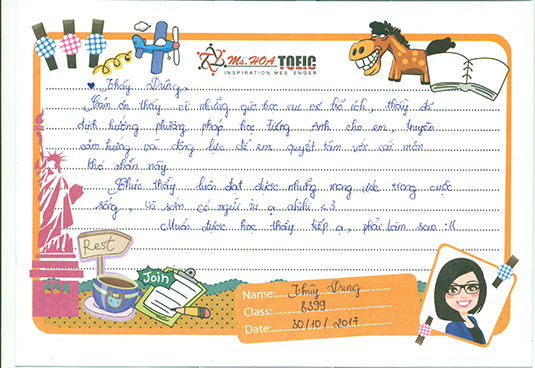 Ms.HOA TOEIC
INSPIRATION MESSENGER
♥ Thầy Dũng,
Cảm ơn thầy vì những giờ học vui vẻ, bổ ích, thầy đã
định hướng phương pháp học Tiếng Anh cho em, truyền
cảm hứng và động lực để em quyết tâm với cái môn
khó nhằn này.
Chúc thầy luôn đạt được những mong ước trong cuộc
sống, và sớm có người iu ạ ahihi <3
Muốn được học thầy tiếp ạ, phải làm sao :((
Rest
Join
Name: Thùy Dung
Class: 3399
Date: 30/10/2017